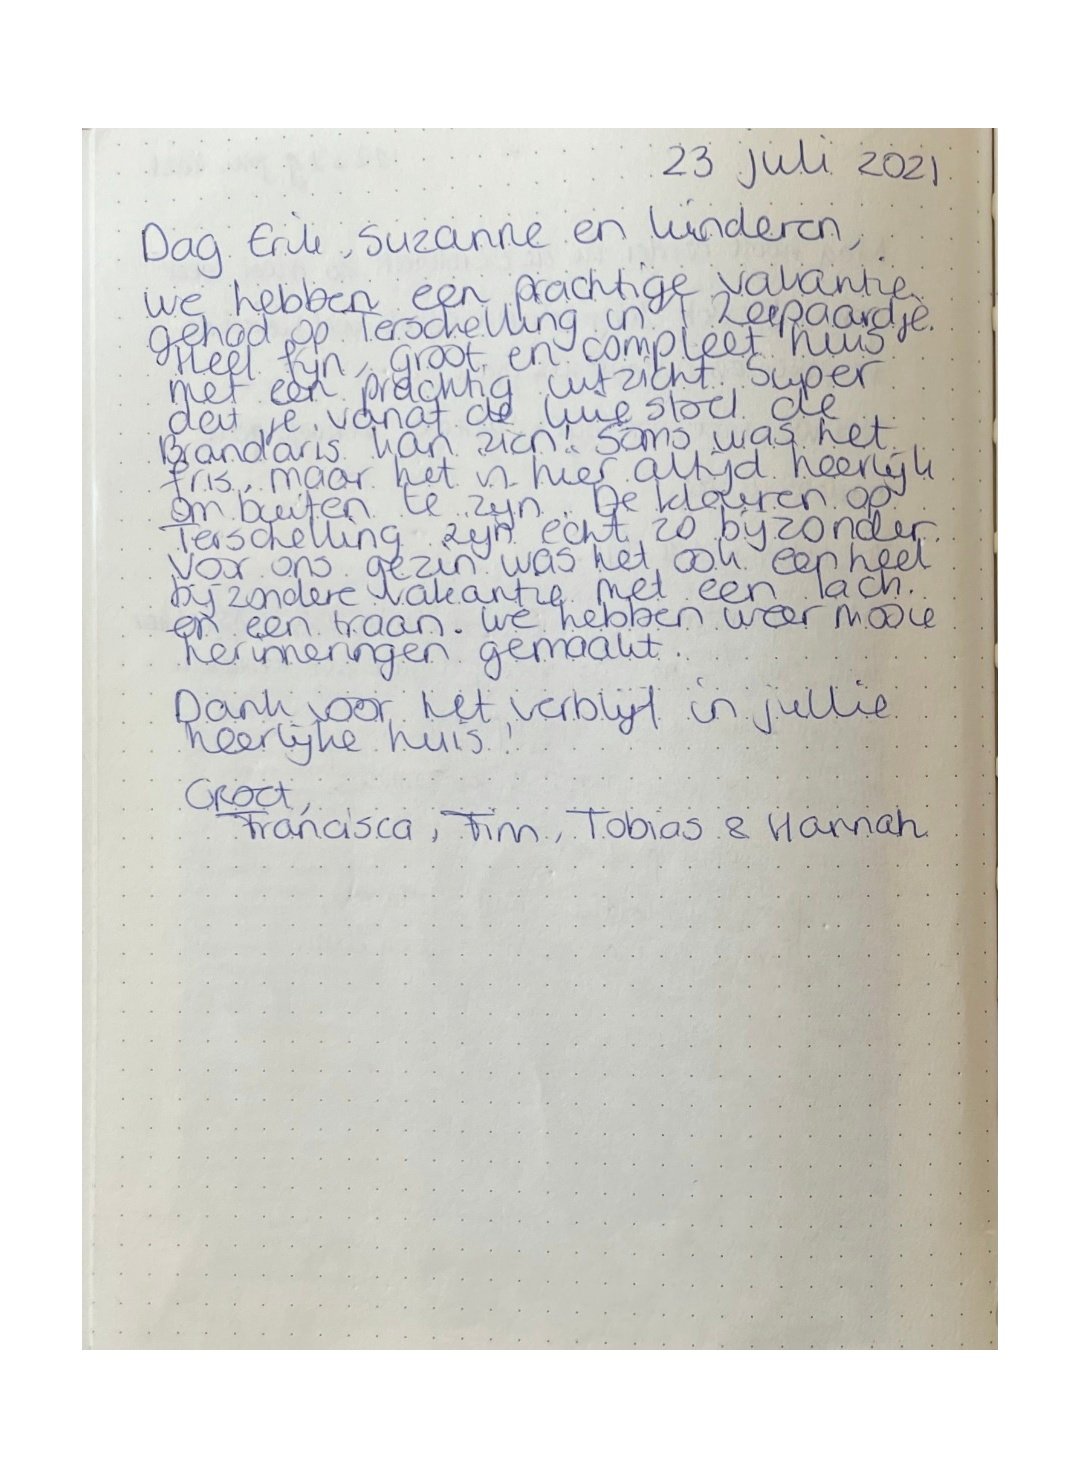 23 juli 2021
Dag Erik, Suzanne en kinderen,
we hebben een prachtige vakantie
gehad op Terschelling in 't Zeepaardje.
Heel fijn, groot en compleet huis
met een prachtig uitzicht. Super
dat je vanaf de luie stoel de
Brandaris kan zien! Soms was het
fris, maar het is hier altijd heerlijk
om buiten te zijn. De kleuren op
Terschelling zijn echt zo bijzonder.
Voor ons gezin was het ook een heel
bijzondere vakantie met een lach
en een traan. We hebben weer mooie
herinneringen gemaakt.
Dank voor het verblijf in jullie
heerlijke huis!
Groet,
Francisca, Tim, Tobias & Hannah